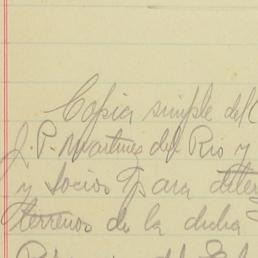 Copia simple del C
J. P. Martinez del Rio y
y Socios para
terrenos de la dicha